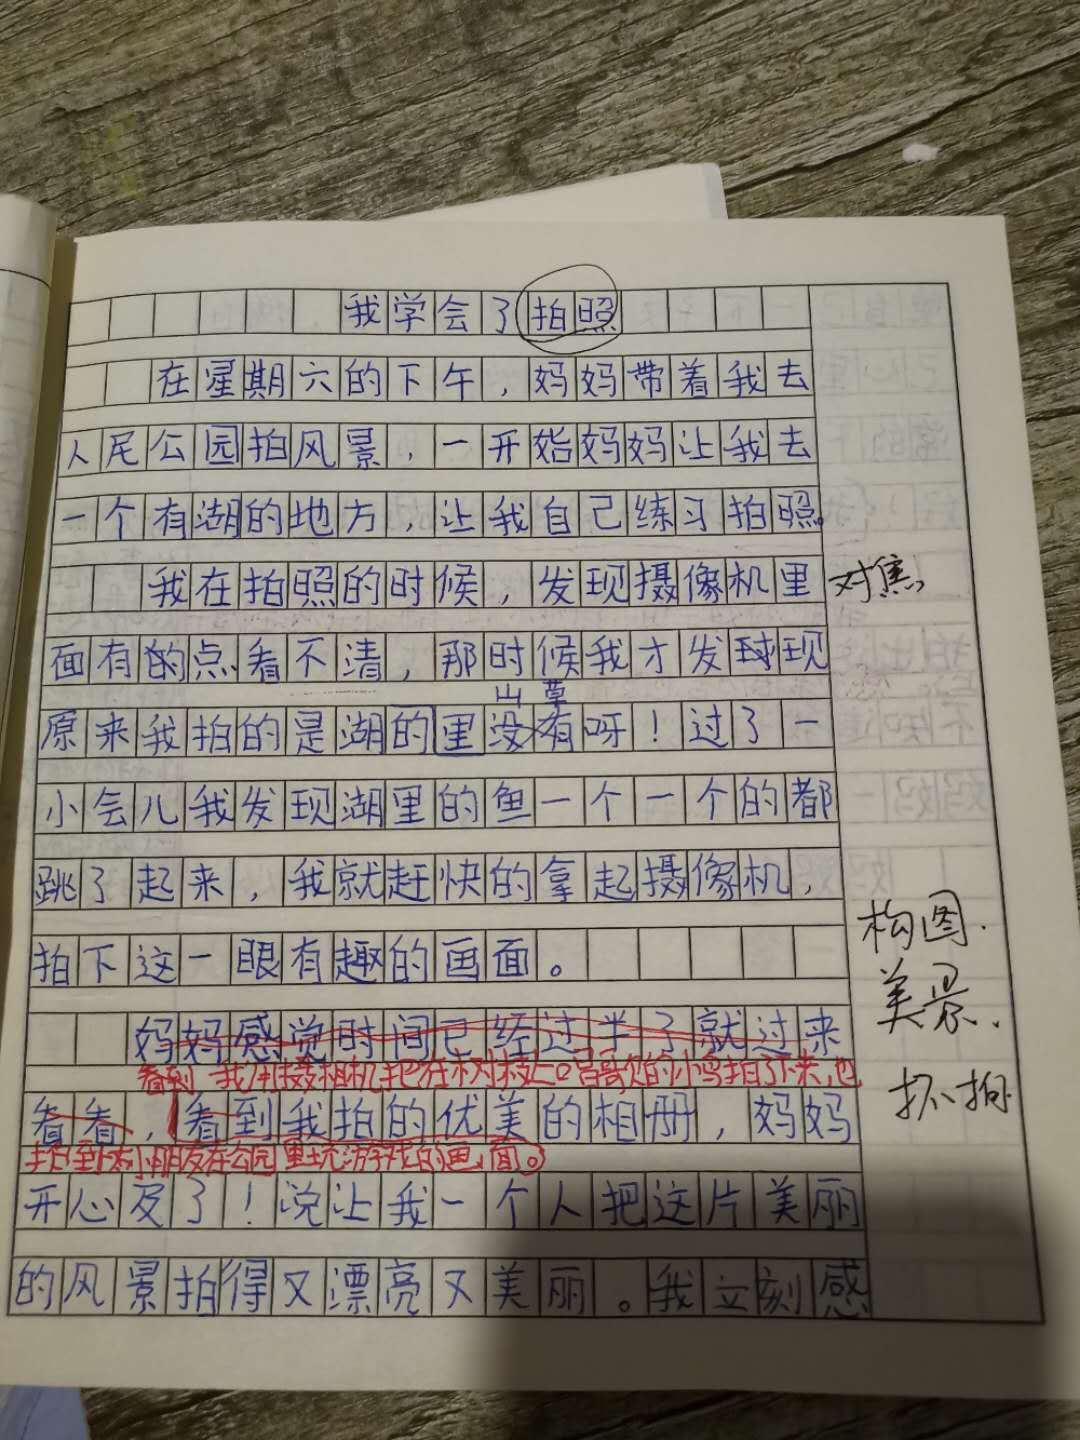 我学会了拍照
在星期六的下午，妈妈带着我去
人民公园拍风景，一开始妈妈让我去
一个有湖的地方，让我自己练习拍照。
我在拍照的时候，发现摄像机里
对焦，
面有的点看不清，那时候我才发球现
山草
原来我拍的是湖的里没有呀！过了一
小会儿我发现湖里的鱼一个一个的都
跳了起来，我就赶快的拿起摄像机，
构图.
拍下这一眼有趣的画面。
美景.
妈妈感觉时间已经过半了就过来
看到 我用摄相机把在树枝上唱歌的小鸟拍了下来，也
抓拍
看看，看到我拍的优美的相册，妈妈
小朋友在公园里玩游戏的画面。
开心及了！说让我一个人把这片美丽
的风景拍得又漂亮又美丽。我立刻感